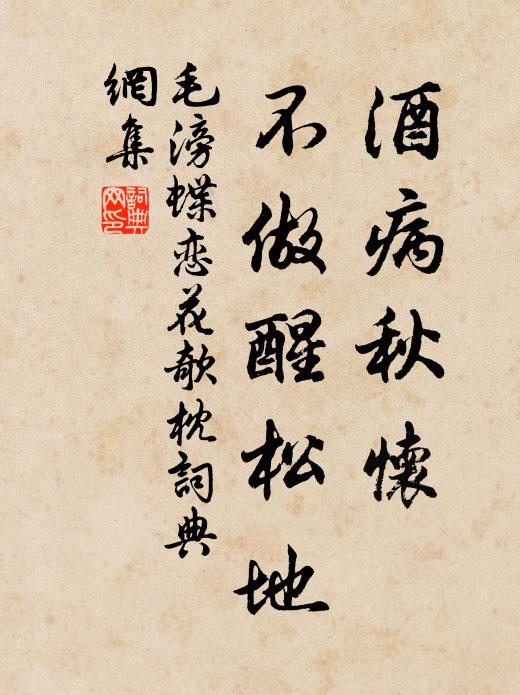 酒病秋懷
不做醒松地
毛滂蝶恋花欹枕詞典
網集
詞典
网印